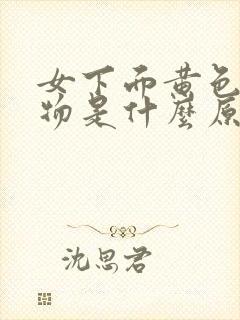 女下面黄色
物是什麼原
沈思君